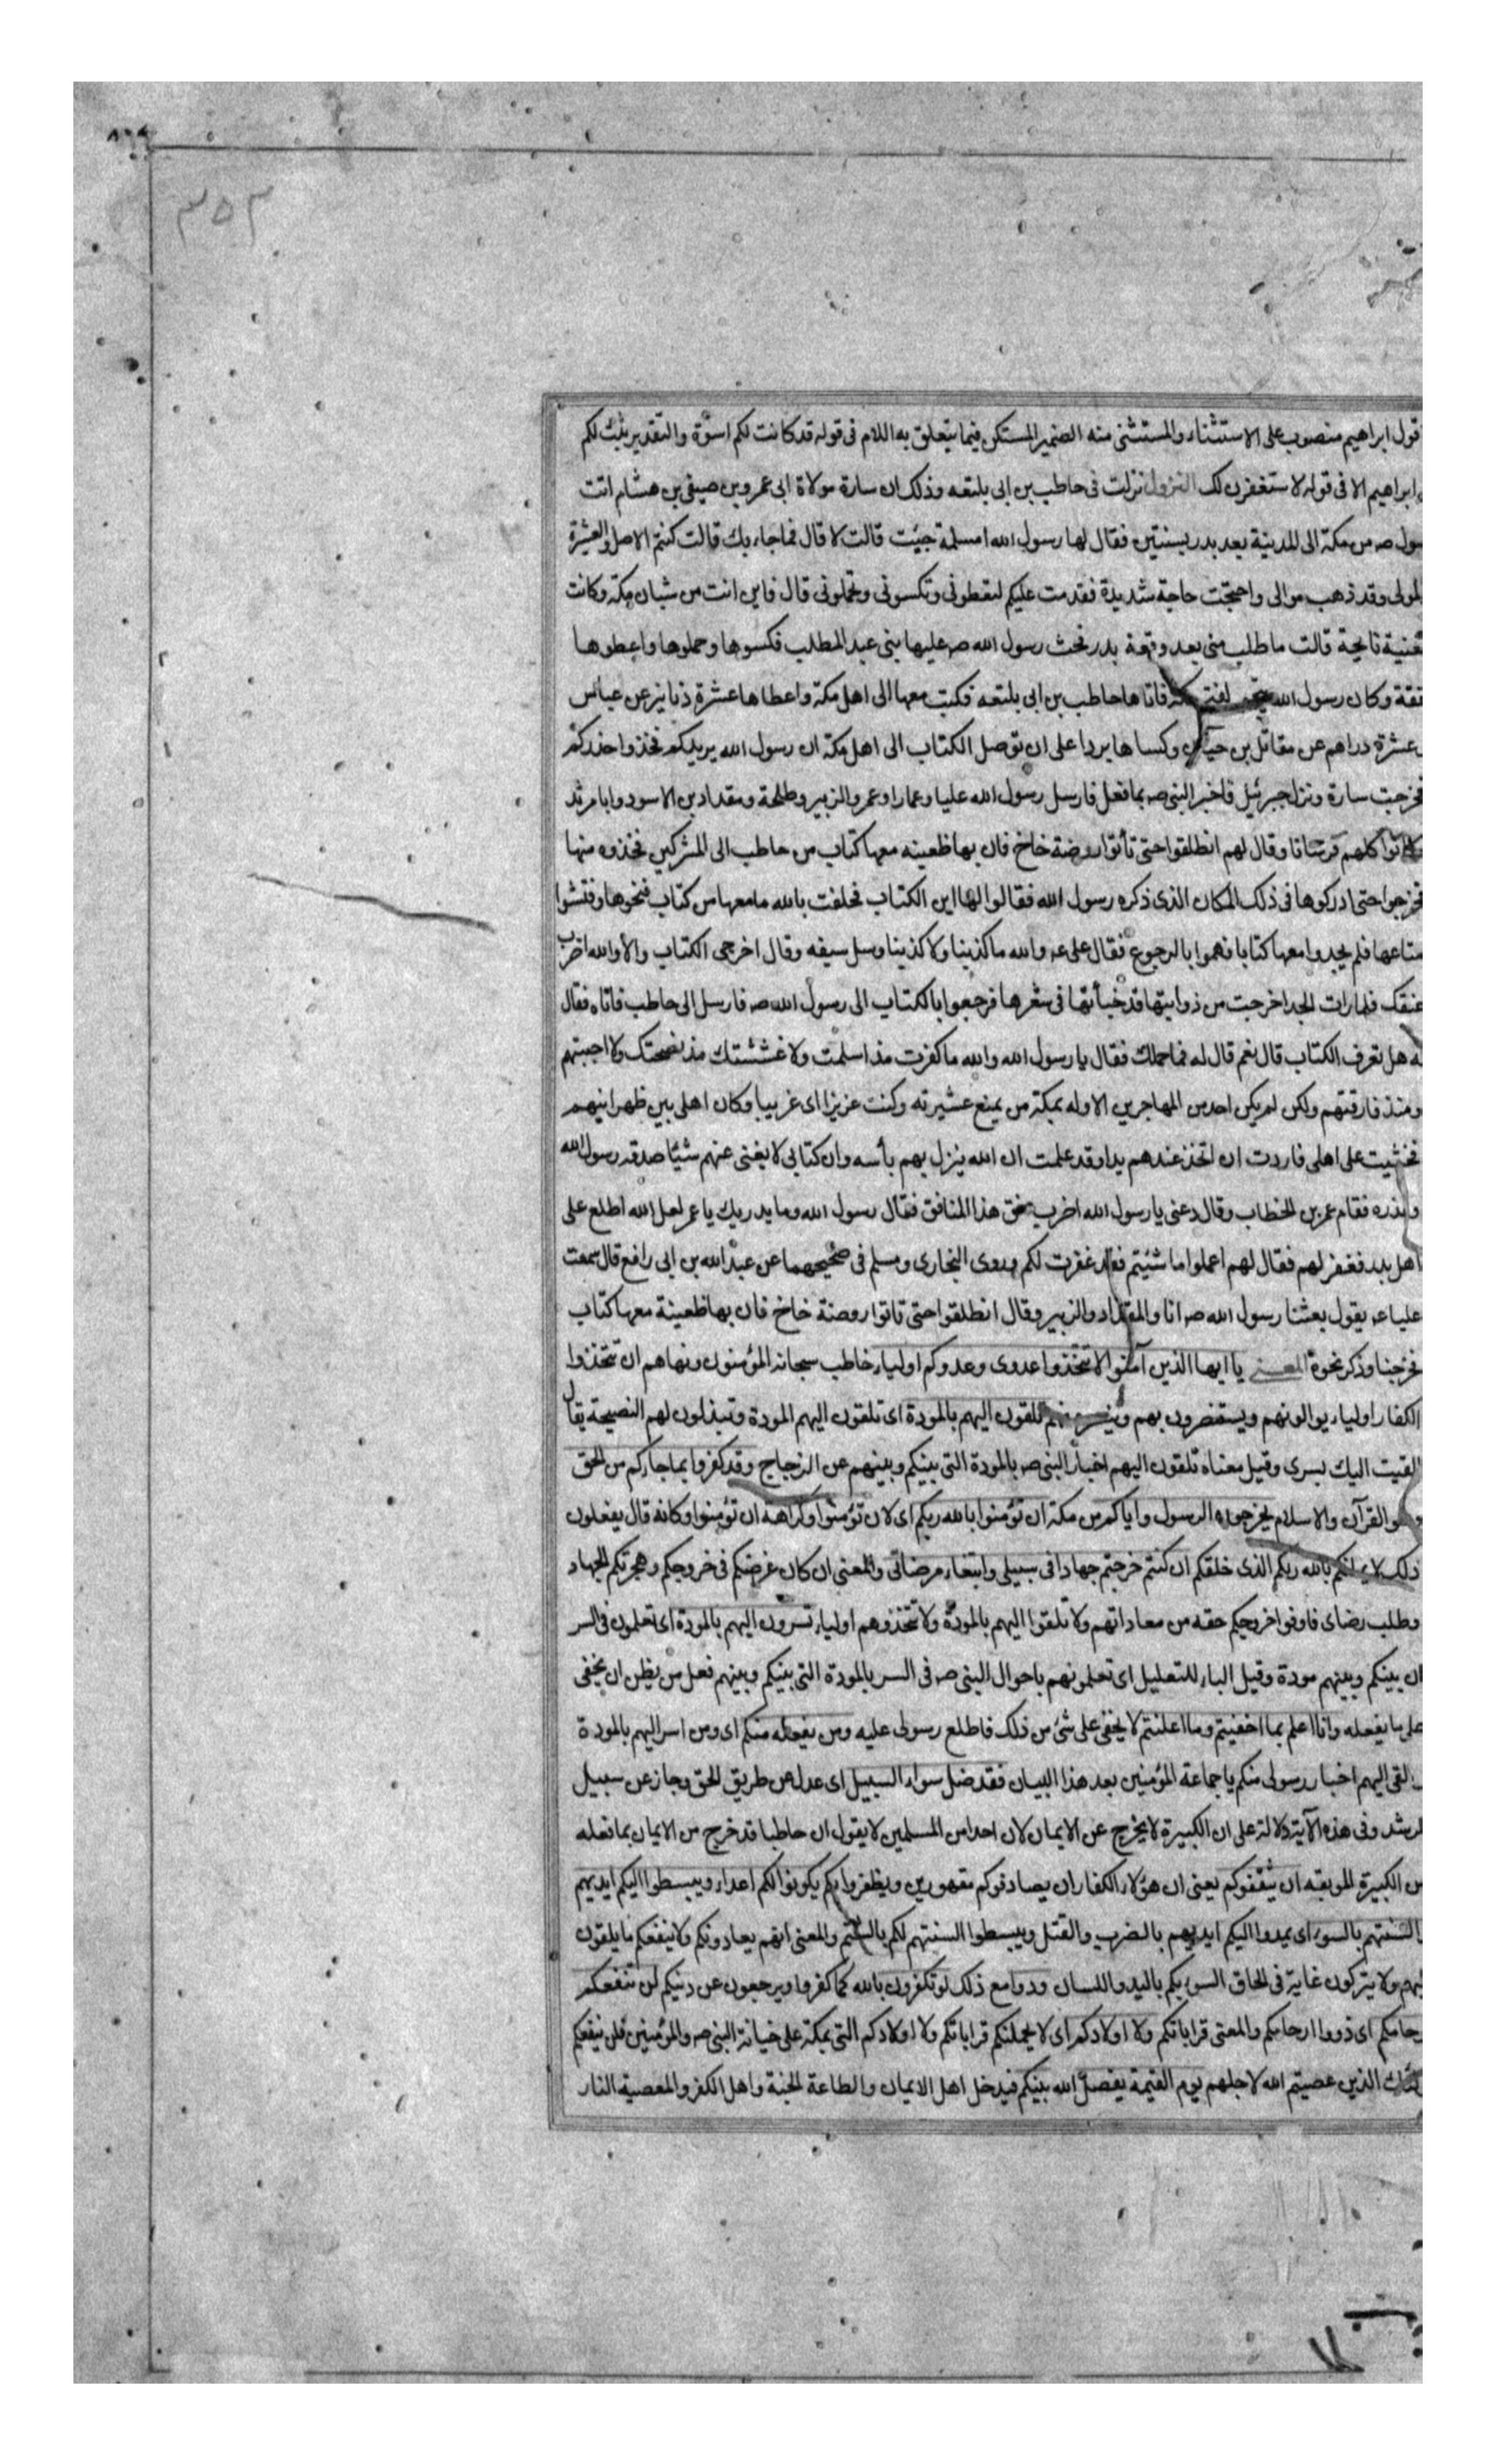 ٣٥٢
قول ابراهيم منصوب على الاستثناء والمستثنى منه الضمير المستكن فيما يتعلق به اللام فى قوله قد كانت لكم اسوة والتقدير يثبت لكم
ابراهيم الا فى قوله لاستغفرن لك النزول نزلت فى حاطب بن ابى بلتعه وذلك ان سارة مولاة ابى عمرو بن صيفى بن هشام اتت
سول صه من مكة الى المدينة بعد بدر بسنتين فقال لها رسول الله امسلمة جيئت قالت لا قال فما جاء بك قالت كنتم الاصل والعشيرة
لموالى وقد ذهب موالى واحتجت حاجة شديدة فقدمت عليكم لتعطونى وتكسونى وتحملونى قال فاين انت من شبان مكة وكانت
مغنية نايحة قالت ما طلب منى بعد وقعة بدر فحث رسول الله صه عليها بنى عبد المطلب فكسوها وحملوها واعطوها
نفقة وكان رسول الله يتجهز لفتح مكة فاتاها حاطب بن ابى بلتعه فكتب معها الى اهل مكة واعطاها عشرة دنانير عن عباس
عشرة دراهم عن مقاتل بن حيان وكساها بردا على ان توصل الكتاب الى اهل مكة ان رسول الله يريدكم فخذوا حذركم
فخرجت سارة ونزل جبرئيل فاخبر النبى صه بما فعل فارسل رسول الله عليا وعمارا وعمر والزبير وطلحة ومقداد بن الاسود وابا مرثد
وكانوا كلهم فرسانا وقال لهم انطلقوا حتى تأتوا روضة خاخ فان بها ظعينه معها كتاب من حاطب الى المشركين فخذوه منها
فخرجوا حتى ادركوها فى ذلك المكان الذى ذكره رسول الله فقالوا لها اين الكتاب فحلفت بالله ما معها من كتاب فنحوها وفتشوا
متاعها فلم يجدوا معها كتابا فهموا بالرجوع فقال على عه والله ما كذبنا ولا كذبنا وسل سيفه وقال اخرجى الكتاب والا والله اضرب
عنقك فلما رات الجد اخرجت من ذوابتها قد خبأتها فى شعرها فرجعوا بالكتاب الى رسول الله صه فارسل الى حاطب فاتاه فقال
له هل تعرف الكتاب قال نعم قال له فما حملك فقال يا رسول الله والله ما كفرت مذ اسلمت ولا غششتك مذ نصحتك ولا اجبتهم
ومنذ فارقتهم ولكن لم يكن احد من المهاجرين الاوله بمكة من يمنع عشيرته وكنت عزيزا اى غريبا وكان اهلى بين ظهرانيهم
فخشيت على اهلى فاردت ان اتخذ عندهم يدا وقد علمت ان الله ينزل بهم بأسه وان كتابى لا يغنى عنهم شيئا صدقه رسول الله
وعذره فقام عمر بن الخطاب وقال دعنى يا رسول الله اضرب عنق هذا المنافق فقال رسول الله وما يدريك يا عمر لعل الله اطلع على
اهل بدر فغفر لهم فقال لهم اعملوا ما شئتم فقد غفرت لكم وروى البخارى ومسلم فى صحيحهما عن عبد الله بن ابى رافع قال سمعت
عليا عه يقول بعثنا رسول الله صه انا والمقداد والزبير وقال انطلقوا حتى تاتوا روضة خاخ فان بها ظعينة معها كتاب
فخرجنا وذكر نحوه المعنى يا ايها الذين آمنوا لا تتخذوا عدوى وعدوكم اولياء خاطب سبحانه المؤمنون ونهاهم ان تتخذوا
الكفار اولياء يوالونهم ويستنصرون بهم وينصرونهم تلقون اليهم بالمودة اى تلقون اليهم المودة وتبذلون لهم النصيحة يقال
القيت اليك بسرى وقيل معناه تلقون اليهم اخبار النبى صه بالمودة التى بينكم وبينهم عن الزجاج وقد كفروا بما جاءكم من الحق
وهو القرآن والاسلام يخرجون الرسول واياكم من مكة ان تؤمنوا بالله ربكم اى لان تؤمنوا وكراهة ان تؤمنوا وكانه قال يفعلون
ذلك لايمانكم بالله ربكم الذى خلقكم ان كنتم خرجتم جهادا فى سبيلى وابتغاء مرضاتى والمعنى ان كان غرضكم فى خروجكم وهجرتكم الجهاد
وطلب رضاى فاوفوا خروجكم حقه من معاداتهم ولا تلقوا اليهم بالمودة ولا تتخذوهم اولياء تسرون اليهم بالمودة اى تعلمون فى السر
ان بينكم وبينهم مودة وقيل الباء للتعليل اى تعلمونهم باحوال النبى صه فى السر بالمودة التى بينكم وبينهم فعل من يظن ان يخفى
على ما يفعله وانا اعلم بما اخفيتم وما اعلنتم لا يخفى على شئ من ذلك فاطلع رسولى عليه ومن يفعله منكم اى ومن اسر اليهم بالمودة
والقى اليهم اخبار رسولى منكم يا جماعة المؤمنين بعد هذا البيان فقد ضل سواء السبيل اى عدل عن طريق الحق وجاز عن سبيل
الرشد وفى هذه الآية دلالة على ان الكبيرة لا يخرج عن الايمان لان احدا من المسلمين لا يقول ان حاطبا قد خرج من الايمان بما فعله
من الكبيرة الموبقه ان يثقفوكم يعنى ان هؤلاء الكفار ان يصادفوكم مقهورين ويظفروا بكم يكونوا لكم اعداء ويبسطوا اليكم ايديهم
والسنتهم بالسوء اى يمدوا اليكم ايديهم بالضرب والقتل ويبسطوا السنتهم لكم بالشتم والمعنى انهم يعادونكم ولا ينفعكم ما يلقون
اليهم ولا يتركون غاية فى الحاق السوء بكم باليد واللسان ودوا مع ذلك لو تكفرون بالله كما كفروا ويرجعون عن دينكم لن تنفعكم
رحامكم اى ذووا ارحامكم والمعنى قراباتكم ولا اولادكم اى لا يحملنكم قراباتكم ولا اولادكم التى بمكة على خيانة النبى صه والمؤمنين فلن ينفعكم
الذين عصيتم الله لاجلهم يوم القيمة يفصل الله بينكم فيدخل اهل الايمان والطاعة الجنة واهل الكفر والمعصية النار